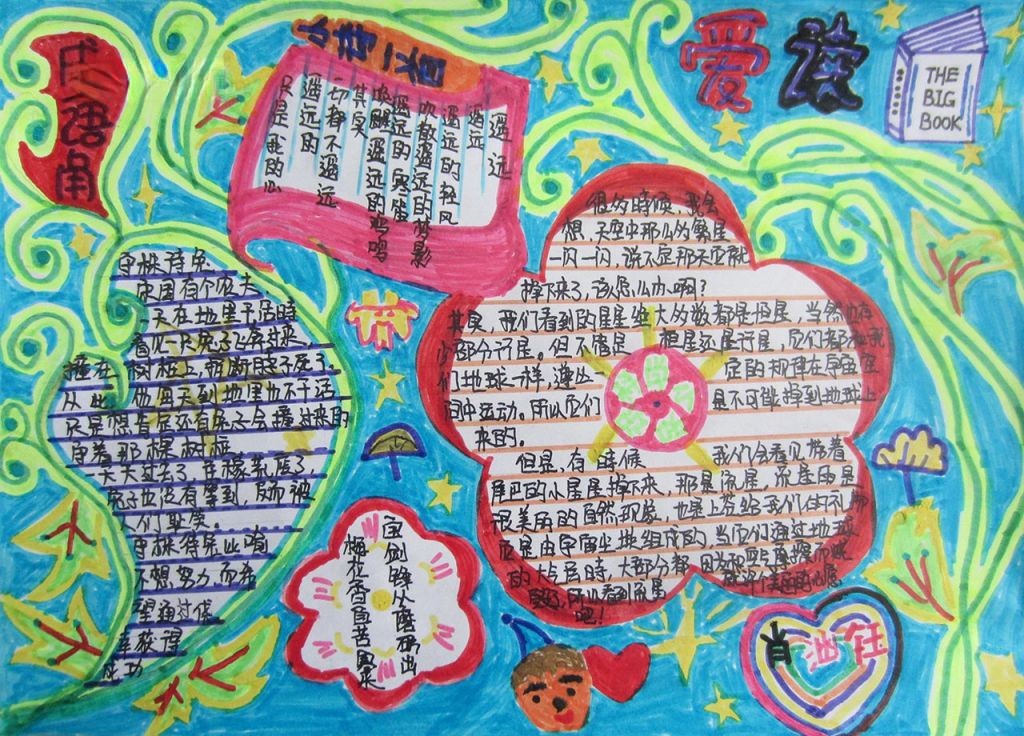 成语角
小诗一首
爱读
THE
BIG
BOOK
遥远
遥远
遥远的轻风
吹散遥远的梦影
遥远的寒笛
唤醒遥远的鸡鸣
其实
一切都不遥远
遥远的
只是我的心
守株待兔
宋国有个农夫
一天在地里干活時
看见一只兔子飞奔过来
撞在树桩上,折断脖子死了。
从此,他每天到地里也不干活
只是想肯定还有兔子会撞过来的
守着那棵树桩
天天过去了,庄稼荒废了,
兔子也没有等到,反而被
人们耻笑。
守株待兔比喻
不想努力,而希
望通过侥
幸获得
成功
很多時候,我会
想,天空中那么多繁星
一闪一闪,说不定那天它就
掉下来了,该怎么办啊?
其实,我们看到的星星绝大多数都是恒星,当然也有
少部分行星。但不管是恒星还是行星,它们都和我
们地球一样,遵从一定的规律在宇宙空
间中运动。所以它们是不可能掉到地球上
来的。
但是,有時候我们会看见拖着
尾巴的小星星掉下来,那是流星,流星雨是
很美丽的自然现象,也是上苍给我们的礼
而是由宇宙尘埃组成的,当它们通过地球
的大气层時,大部分都因为和空气摩擦而燃
所以看到流星
吧!
宝剑锋从磨砺出
梅花香自苦寒来
肖涵钰